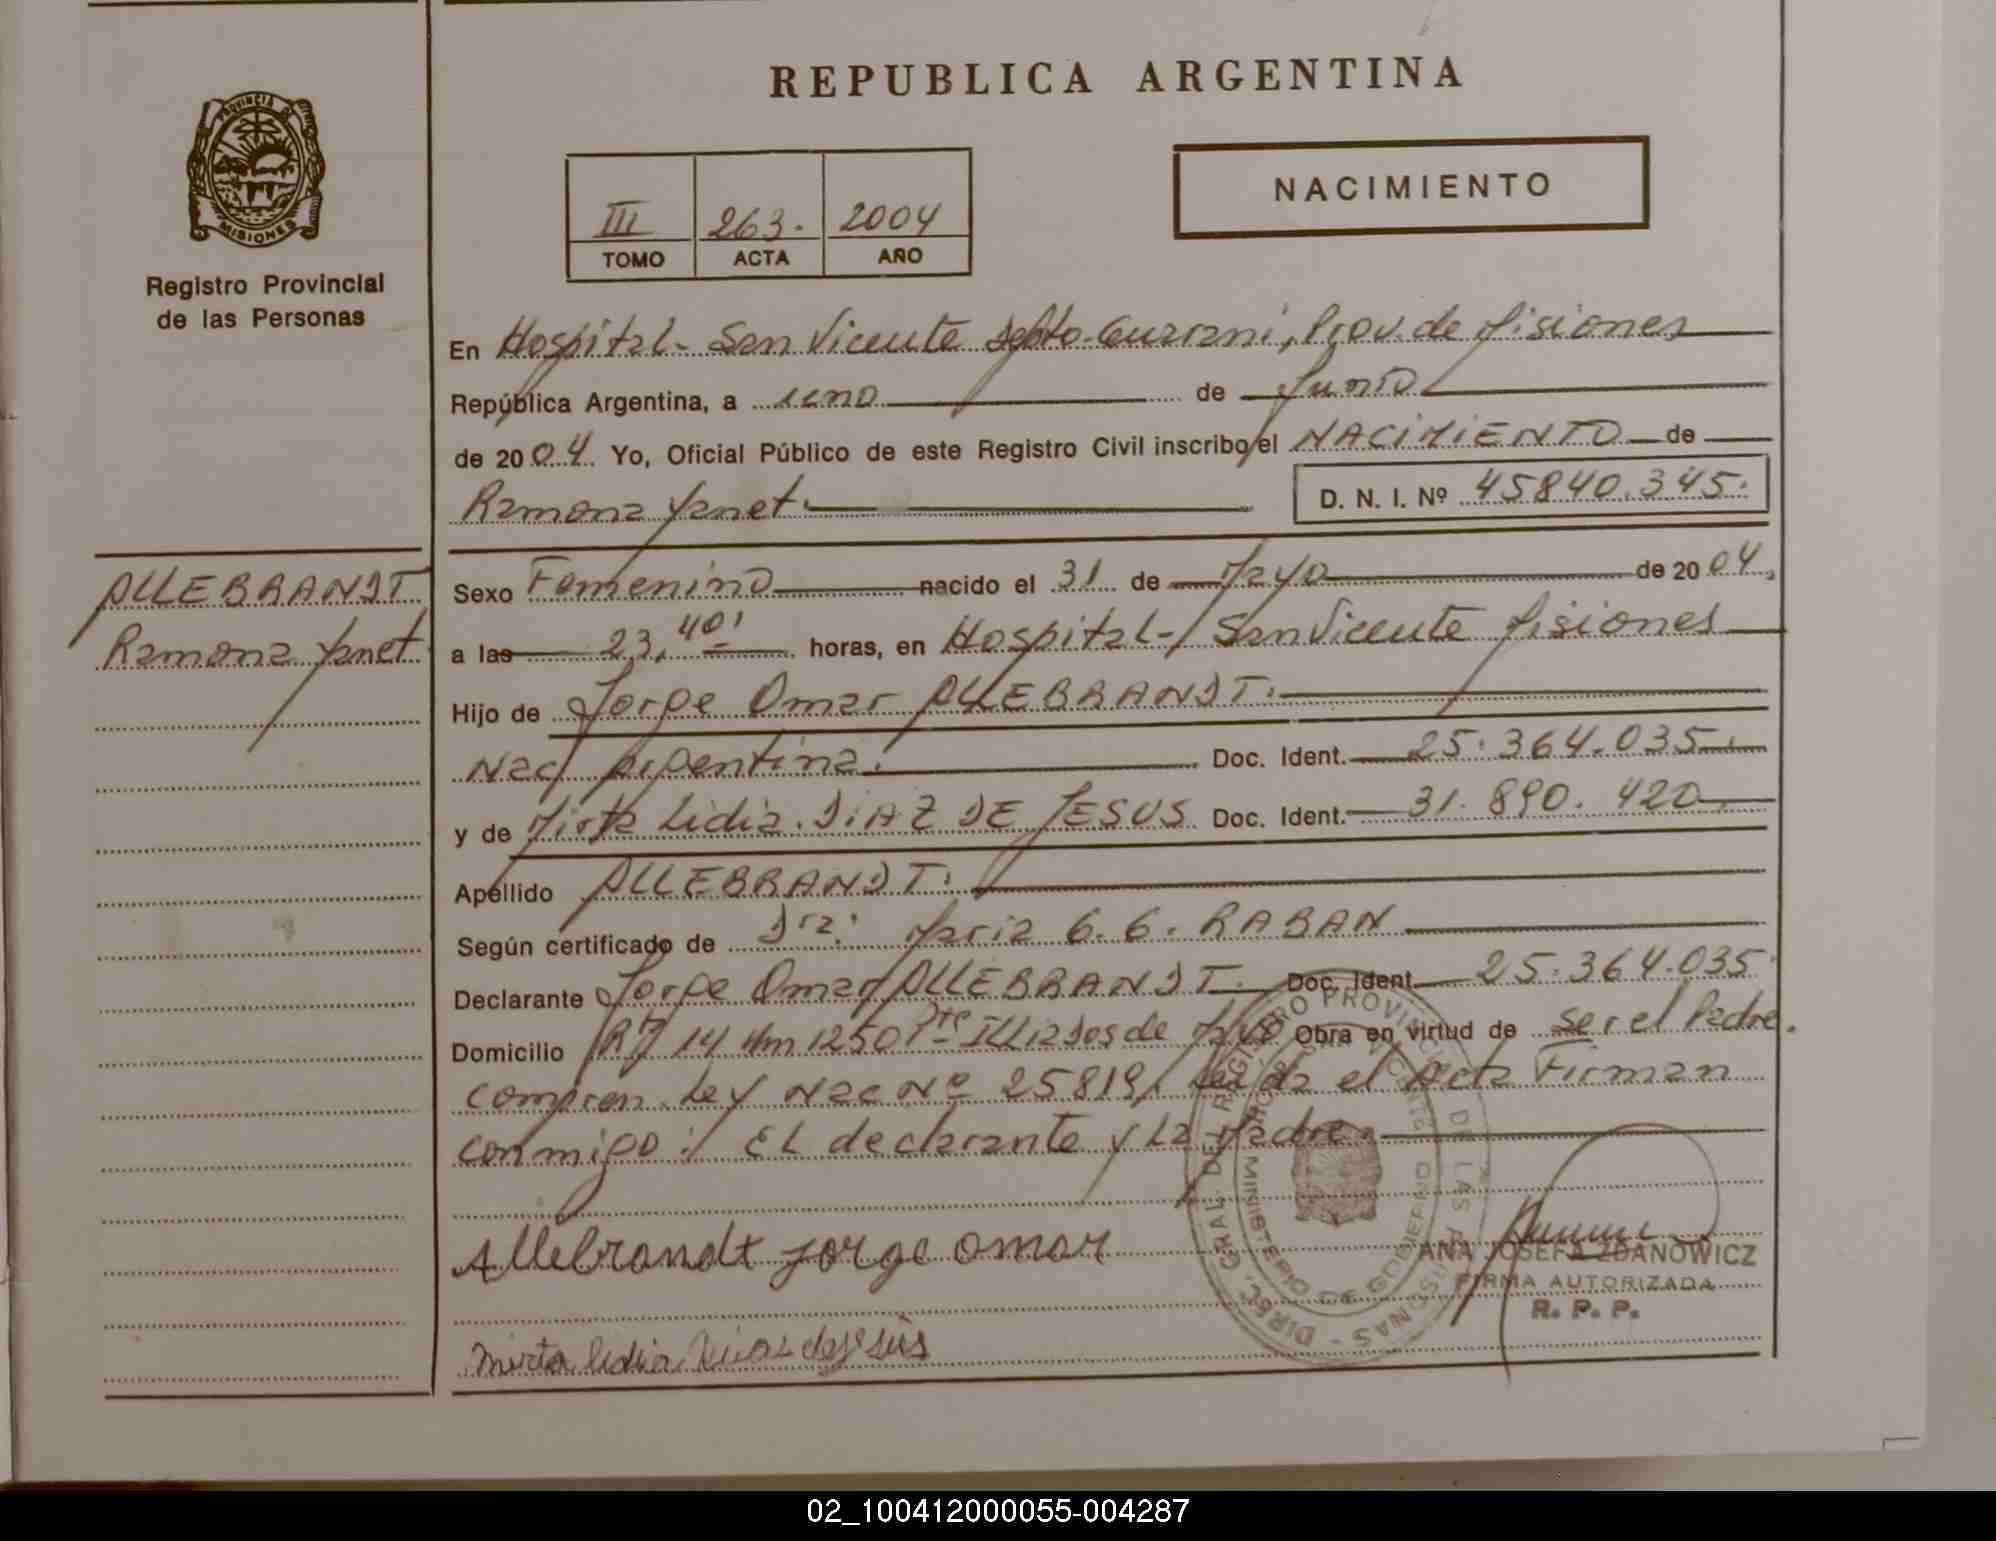 REPUBLICA ARGENTINA
PROVINCIA DE MISIONES
Registro Provincial
de las Personas
III 263. 2004
TOMO ACTA AÑO
NACIMIENTO
En Hospital- San Vicente Dpto. Guarani, Prov. de Misiones
República Argentina, a uno de Junio
de 2004. Yo, Oficial Público de este Registro Civil inscribo el NACIMIENTO de
Ramona Yanet. D. N. I. Nº 45840.345.
ALLEBRANDT
Ramona Yanet
Sexo Femenino nacido el 31 de Mayo de 2004,
a las 23,40' horas, en Hospital- San Vicente Misiones
Hijo de Jorge Omar ALLEBRANDT.
Nac Argentina. Doc. Ident. 25.364.035.
y de Mirta Lidia DiAZ DE JESUS Doc. Ident. 31.890.420
Apellido ALLEBRANDT.
Según certificado de Dra: Maria G. G. RABAN
Declarante Jorge Omar ALLEBRANDT. Doc. Ident. 25.364.035
Domicilio 14 Km 1250 de Mayo Obra en virtud de ser el Padre.
Ley Nac Nº 25819, Leida el Acta Firman
conmigo: El declarante y La Madre.
Allebrandt Jorge Omar
Mirta Lidia Diaz de Jesús
DIREC. GRAL. DEL REGISTRO PROVINCIAL DE LAS PERSONAS
MINISTERIO DE GOBIERNO
ANA JOSEFA ZDANOWICZ
FIRMA AUTORIZADA
R. P. P.
02_100412000055-004287